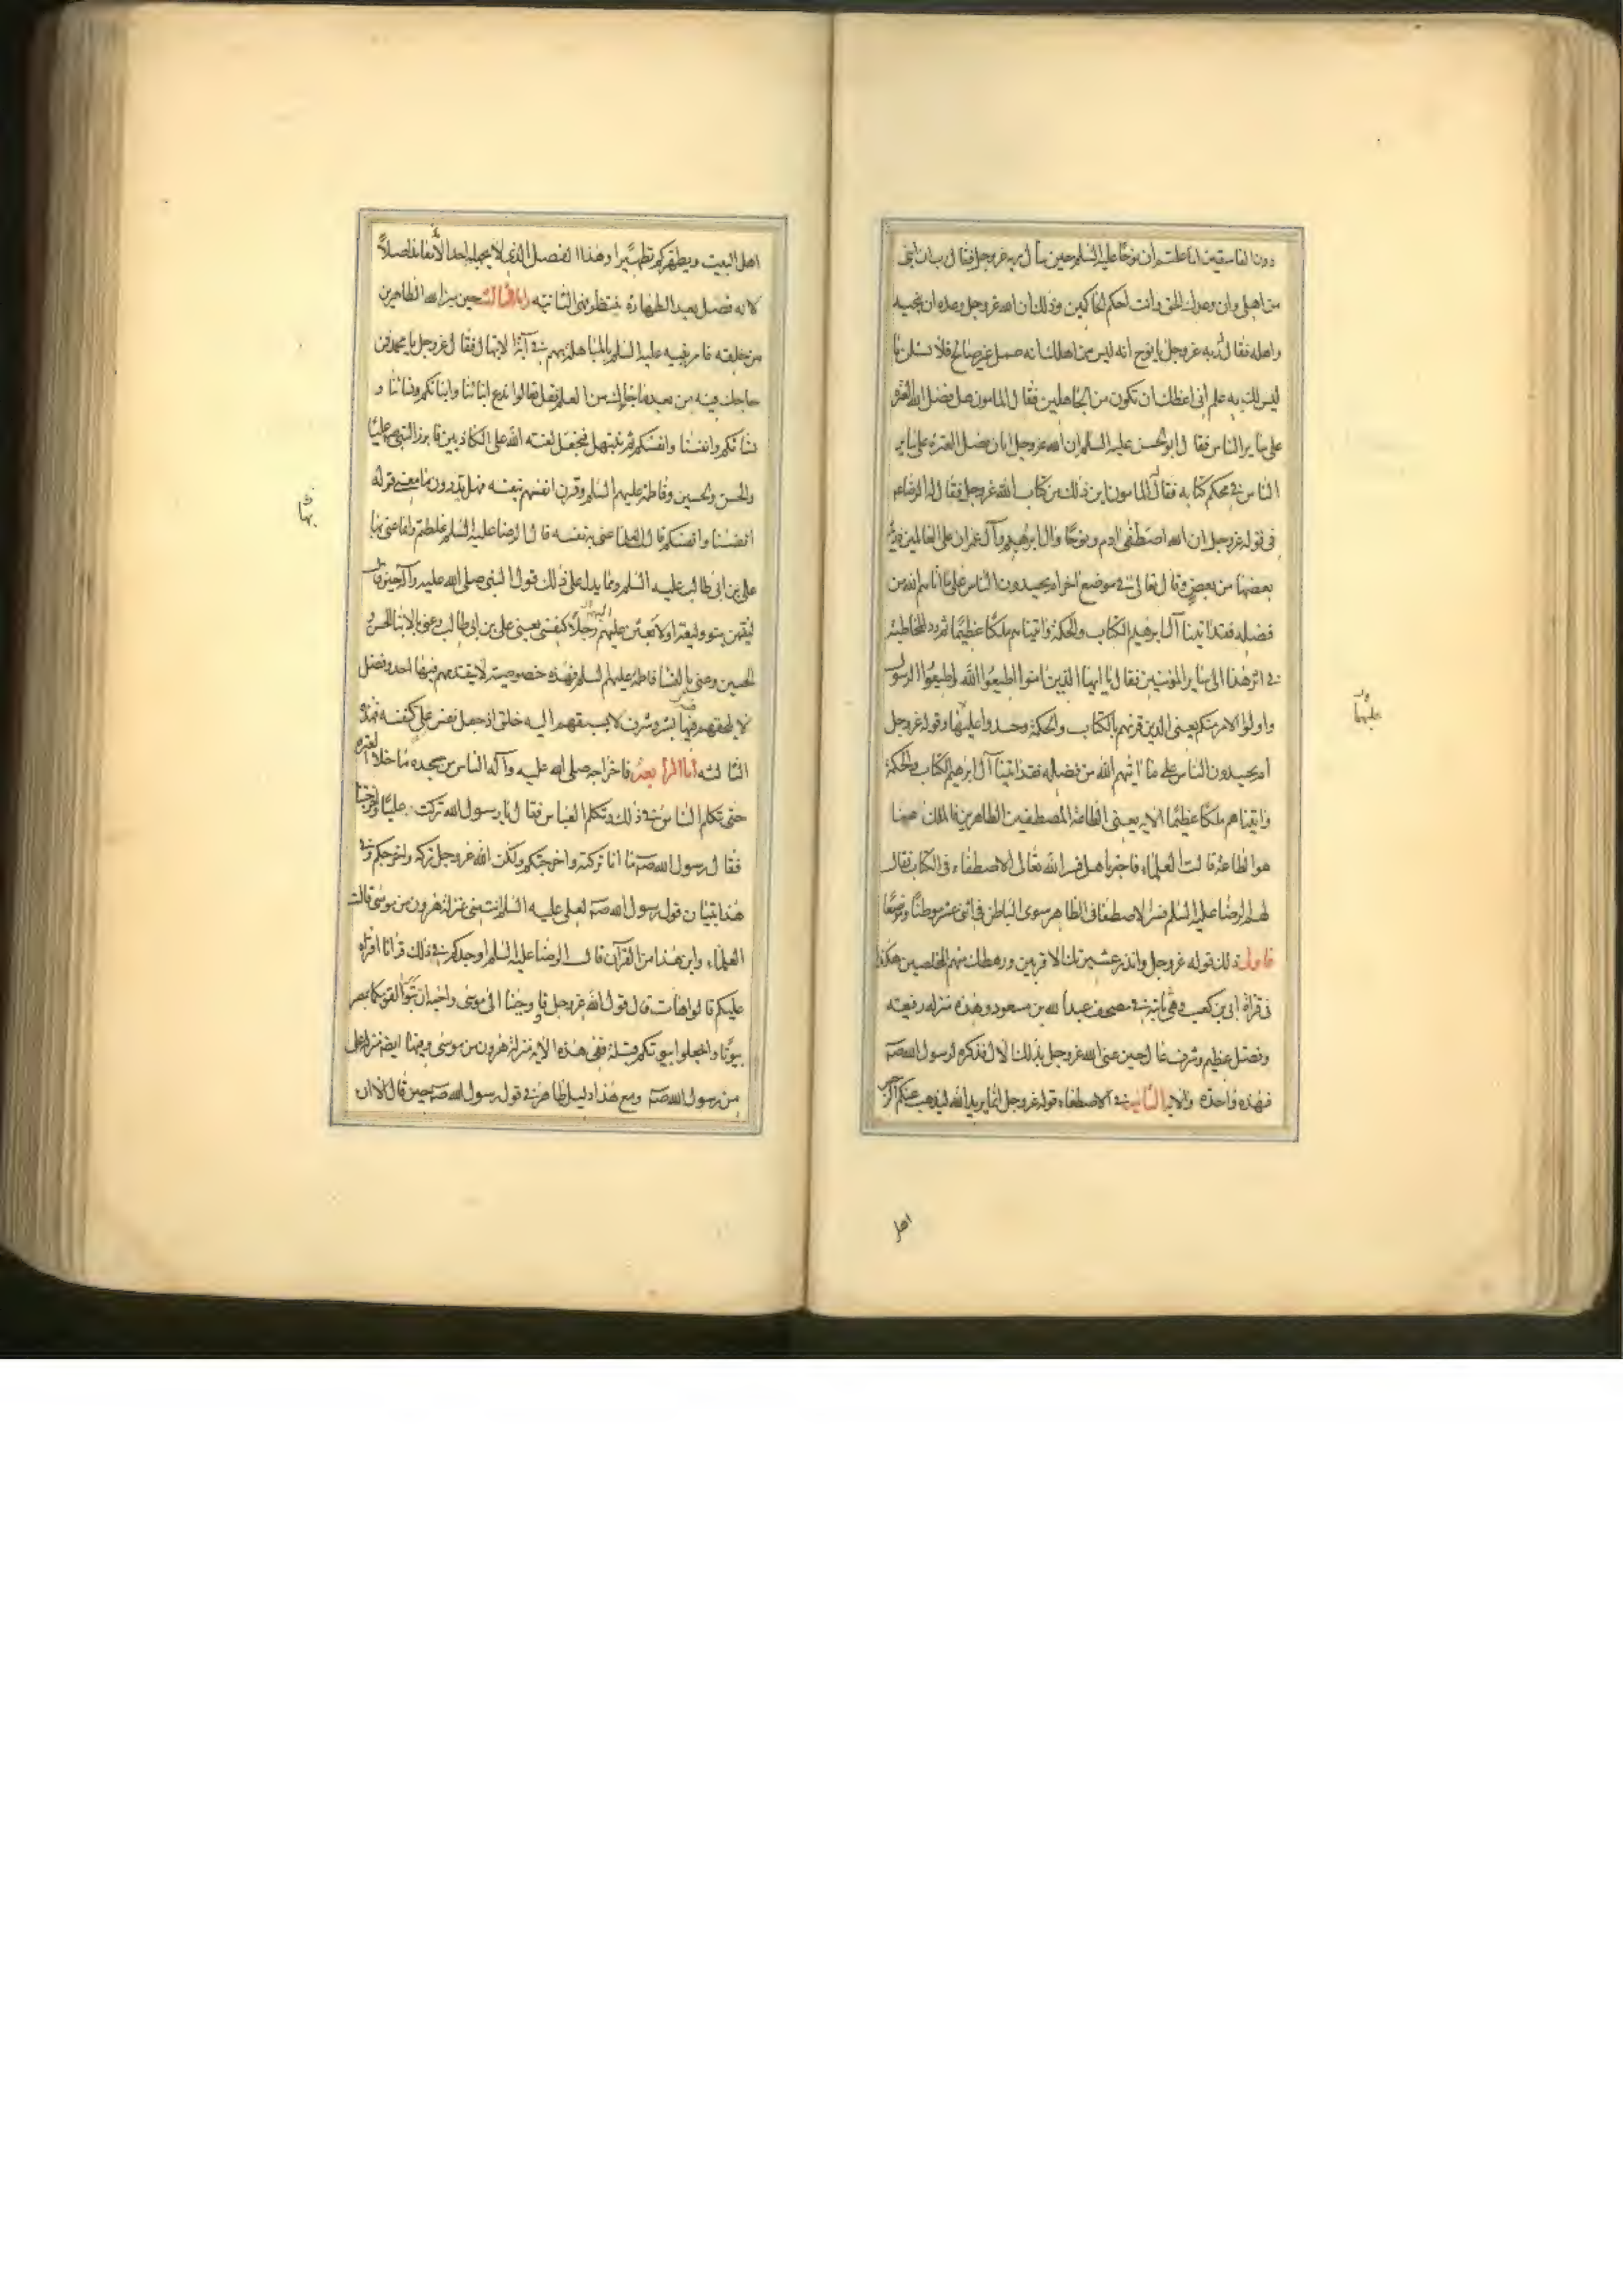 دون الفاسقين اما علمتم ان نوحا عليه السلم حين سأل ربه عزوجل فقال رب ان ابنى
من اهلى وان وعدك الحق وانت احكم الحاكمين وذلك ان الله عزوجل وعده ان ينجيه
واهله فقال له ربه عزوجل يا نوح انه ليس من اهلك انه عمل غير صالح فلا تسئلن ما
ليس لك به علم انى اعظك ان تكون من الجاهلين فقال المامون هل فضل الله العترة
على ساير الناس فقال ابو الحسن عليه السلم ان الله عزوجل ابان فضل العترة على ساير
الناس فى محكم كتابه فقال المامون اين ذلك من كتاب الله عزوجل فقال له الرضا عم
فى قوله عزوجل ان الله اصطفى ادم ونوحا وال ابرهيم وآل عمران على العالمين ذرية
بعضها من بعض وقال تعالى فى موضع اخر ام يحسدون الناس على ما اتاهم الله من
فضله فقد اتينا آل ابرهيم الكتاب والحكمة واتيناهم ملكا عظيما ثم رد المخاطبة
فى اثر هذا الى ساير المؤمنين فقال يا ايها الذين امنوا اطيعوا الله واطيعوا الرسول
واولوا الامر منكم يعنى الذين قرنهم بالكتاب والحكمة وحسدوا عليهما وقوله عزوجل
ام يحسدون الناس على ما اتيهم الله من فضله فقد اتينا آل ابرهيم الكتاب والحكمة
واتيناهم ملكا عظيما الاية يعنى الطاعة للمصطفين الطاهرين فالملك ههنا
هو الطاعة قالت العلماء فاخبرنا هل فسر الله تعالى الاصطفاء فى الكتاب فقال
لهم الرضا عليه السلم فسر الاصطفا فى الظاهر سوى الباطن فى اثنى عشر موطنا وموضعا
فاول ذلك قوله عزوجل وانذر عشيرتك الاقربين ورهطك منهم المخلصين هكذا
فى قرائة ابى بن كعب وهى ثابتة فى مصحف عبد الله بن مسعود وهذه منزلة رفيعته
وفضل عظيم وشرف عال حين عنى الله عزوجل بذلك الال فذكره لرسول الله صه
فهذه واحدة والاية الثانية فى الاصطفاء قوله عزوجل انما يريد الله ليذهب عنكم الرجس
عليها
اهل
اهل البيت ويطهركم تطهيرا وهذا الفضل الذى لا يجهله احد الا معاند اصلا
لانه فضل بعد الطهارة ينتظر فهى الثانية واما الثالثة حين ميز الله الطاهرين
من خلقه فامر نبيه عليه السلم بالمباهلة بهم فى آية الابتهال فقال عزوجل يا محمد فمن
حاجك فيه من بعد ما جاءك من العلم فقل تعالوا ندع ابنائنا وابنائكم ونسائنا و
نسائكم وانفسنا وانفسكم ثم نبتهل فنجعل لعنة الله على الكاذبين فابرز النبى صه عليا
والحسن والحسين وفاطمة عليهم السلم وقرن انفسهم بنفسه فهل تدرون ما معنى قوله
انفسنا وانفسكم قالت العلما عنى به نفسه قال الرضا عليه السلم غلطتم وانما عنى بها
على بن ابى طالب عليه السلم ومما يدل على ذلك قول النبى صلى الله عليه وآله حين قال
لينتهين بنو وليعة او لابعثن عليهم رجلا كنفسى يعنى على بن ابى طالب وعنى بالابناء الحسن و
الحسين وعنى بالنسا فاطمة عليهم السلم فهذه خصوصية لا يتقدمهم فيها احد وفضل
لا يلحقهم فيها بشر وشرف لا يسبقهم اليه خلق اذ جعل نفس على كنفسه فهذه
الثالثة اما الرابعة فاخراجه صلى الله عليه وآله الناس من مسجده ما خلا العترة
حتى تكلم الناس فى ذلك وتكلم العباس فقال يا رسول الله تركت عليا واخرجتنا
فقال رسول الله صه ما انا تركته واخرجتكم ولكن الله عزوجل تركه واخرجكم وفى
هذا تبيان قول رسول الله صه لعلى عليه السلم انت منى بمنزلة هرون من موسى قالت
العلماء واين هذا من القرآن قال الرضا عليه السلم اوجدكم فى ذلك قرانا اقراه
عليكم قالوا هات قال قول الله عزوجل واوحينا الى موسى واخيه ان تبوا لقومكما بمصر
بيوتا واجعلوا بيوتكم قبلة ففى هذه الاية منزلة هرون من موسى وفيها ايضه منزلة على
من رسول الله صه ومع هذا دليل ظاهر فى قول رسول الله صه حين قال الا ان
بها